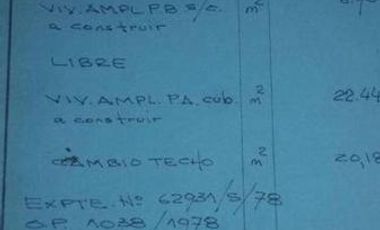 VIV. AMPL. PB s/c. m²
a construir
LIBRE
VIV. AMPL. PA. cub. m² 22.44
a construir
CAMBIO TECHO m² 20,18
EXPTE. Nº 62931/S/78
O.P. 1038/1978